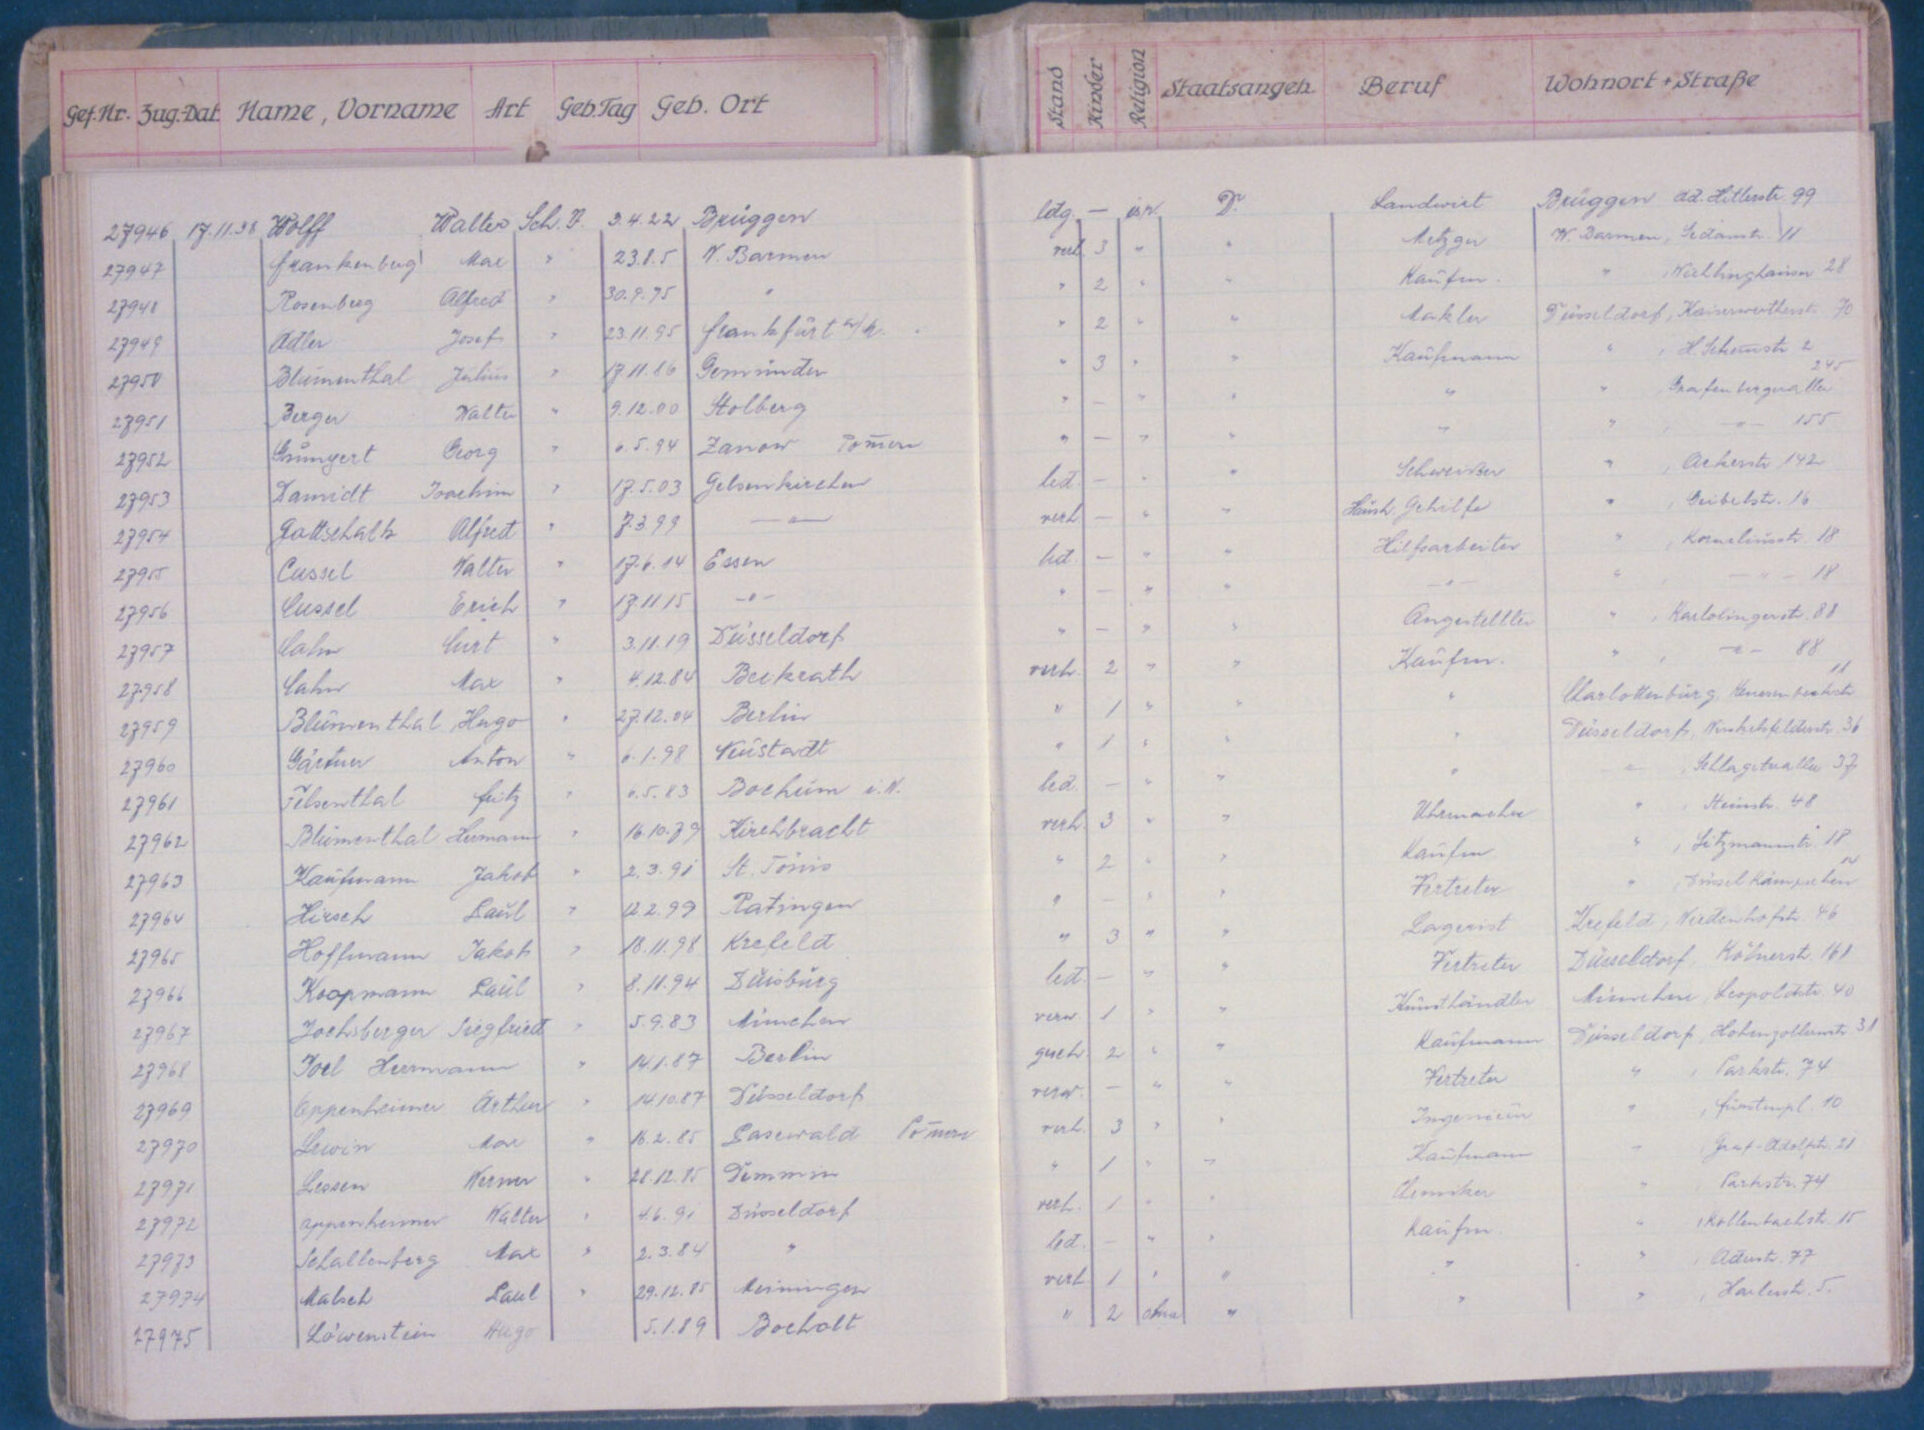 Gef.Nr. Zug.-Dat. Name, Vorname Art Geb.Tag Geb. Ort Stand Kinder Religion Staatsangeh. Beruf Wohnort + Straße
27946 17.11.38 Wolff Walter Sch. J. 3.4.22 Brüggen ldg. — isr. D. Landwirt Brüggen Ad. Hitlerstr. 99
27947 Frankenberg Max " 23.8.5 W. Barmen verh. 3 " " Metzger W. Barmen, Sedanstr. 11
27948 Rosenberg Alfred " 30.9.95 " " 2 " " Kaufm. " 28
27949 Adler Josef " 23.11.95 Frankfurt a/M. " 2 " " Makler Düsseldorf, Kaiserwertherst. 70
27950 Blumenthal Julius " 17.11.86 Gemünden " 3 " " Kaufmann " 2
27951 Berger Walter " 9.12.00 Stolberg " — " " " " , Grafenbergerallee 245
27952 Georg " 6.5.94 Zanow Pom̄ern " — " " " " , —"— 155
27953 Joachim " 17.5.03 Gelsenkirchen led. — " " Schweißer " , Ackerstr 142
27954 Gottschalk Alfred " 7.3.99 —"— verh. — " " Haush. Gehilfe " , Geibelstr. 16
27955 Cussel Walter " 17.6.14 Essen led. — " " Hilfsarbeiter " , Korneliusstr. 18
27956 Cussel Erich " 17.11.15 —"— " — " " —"— " , —"— 18
27957 Cahn Curt " 3.11.19 Düsseldorf " — " " Angestellter " , Karolingerstr. 88
27958 Cahn Max " 4.12.84 verh. 2 " " Kaufm. " , —"— 88
27959 Blumenthal Hugo " 27.12.04 Berlin " 1 " " " Charlottenburg, 11
27960 Gärtner Anton " 6.1.98 Neustadt " 1 " " " Düsseldorf, 36
27961 Felsenthal Fritz " 6.5.83 Bochum i.W. led. — " " " —"— , Schlageterallee 37
27962 Blumenthal Hermann " 16.10.79 Kirchbracht verh. 3 " " Uhrmacher " , 48
27963 Kaufmann Jakob " 2.3.91 St. Tönis " 2 " " Kaufm " , Litzmannstr. 18
27964 Hirsch Paul " 12.2.99 Ratingen " — " " Vertreter " , Düsselkämpchen 14
27965 Hoffmann Jakob " 18.11.98 Krefeld " 3 " " Lagerist Krefeld, 46
27966 Koopmann Paul " 8.11.94 Duisburg led. — " " Vertreter Düsseldorf, Kölnerstr. 161
27967 Jochsberger Siegfried " 5.9.83 München verw. 1 " " Kunsthändler München, Leopoldstr. 40
27968 Joel Herrmann " 14.1.87 Berlin gesch 2 " " Kaufmann Düsseldorf, Hohenzollernstr. 31
27969 Oppenheimer Arthur " 14.10.87 Düsseldorf verw. — " " Vertreter " , Parkstr. 74
27970 Lewin Max " 16.2.85 Pasewald Pom̄ern verh. 3 " " Ingenieur " , Fürstenpl. 10
27971 Lessen Werner " 28.12.85 Demmin " 1 " " Kaufmann " , Graf-Adolfstr. 21
27972 Oppenheimer Walter " 4.6.91 Düsseldorf verh. 1 " " Chemiker " , Parkstr. 74
27973 Schallenberg Max " 2.3.84 " led. — " " Kaufm. " , Roßenbachstr. 15
27974 Malsch Paul " 29.12.85 Meiningen verh 1 " " " " , Adersstr. 77
27975 Löwenstein Hugo 5.1.89 Bocholt " 2 ohne " " " , 5.